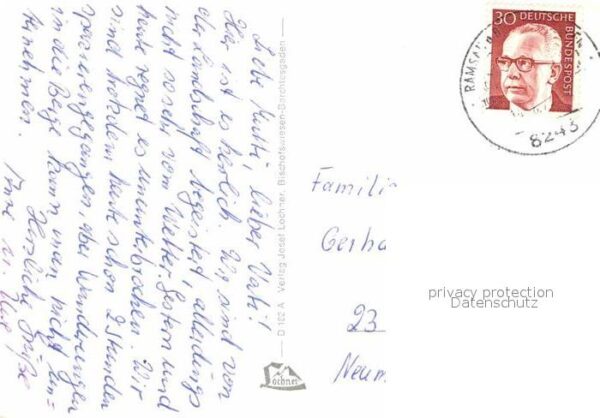 Liebe Mutti, lieber Vati!
Hier ist es herrlich. Wir sind von
der Landschaft begeistert, allerdings
nicht so sehr vom Wetter. Gestern und
heute regnet es ununterbrochen. Wir
sind trotzdem heute schon 2 Stunden
spazierengegangen, aber Wanderungen
in die Berge kann man nicht un-
ternehmen.
Herzliche Grüße
D 102 A Verlag Josef Lochner, Bischofswiesen-Berchtesgaden
Lochner
30 DEUTSCHE
BUNDESPOST
RAMSAU
8243
Famili
Gerha
23
Neum
privacy protection
Datenschutz